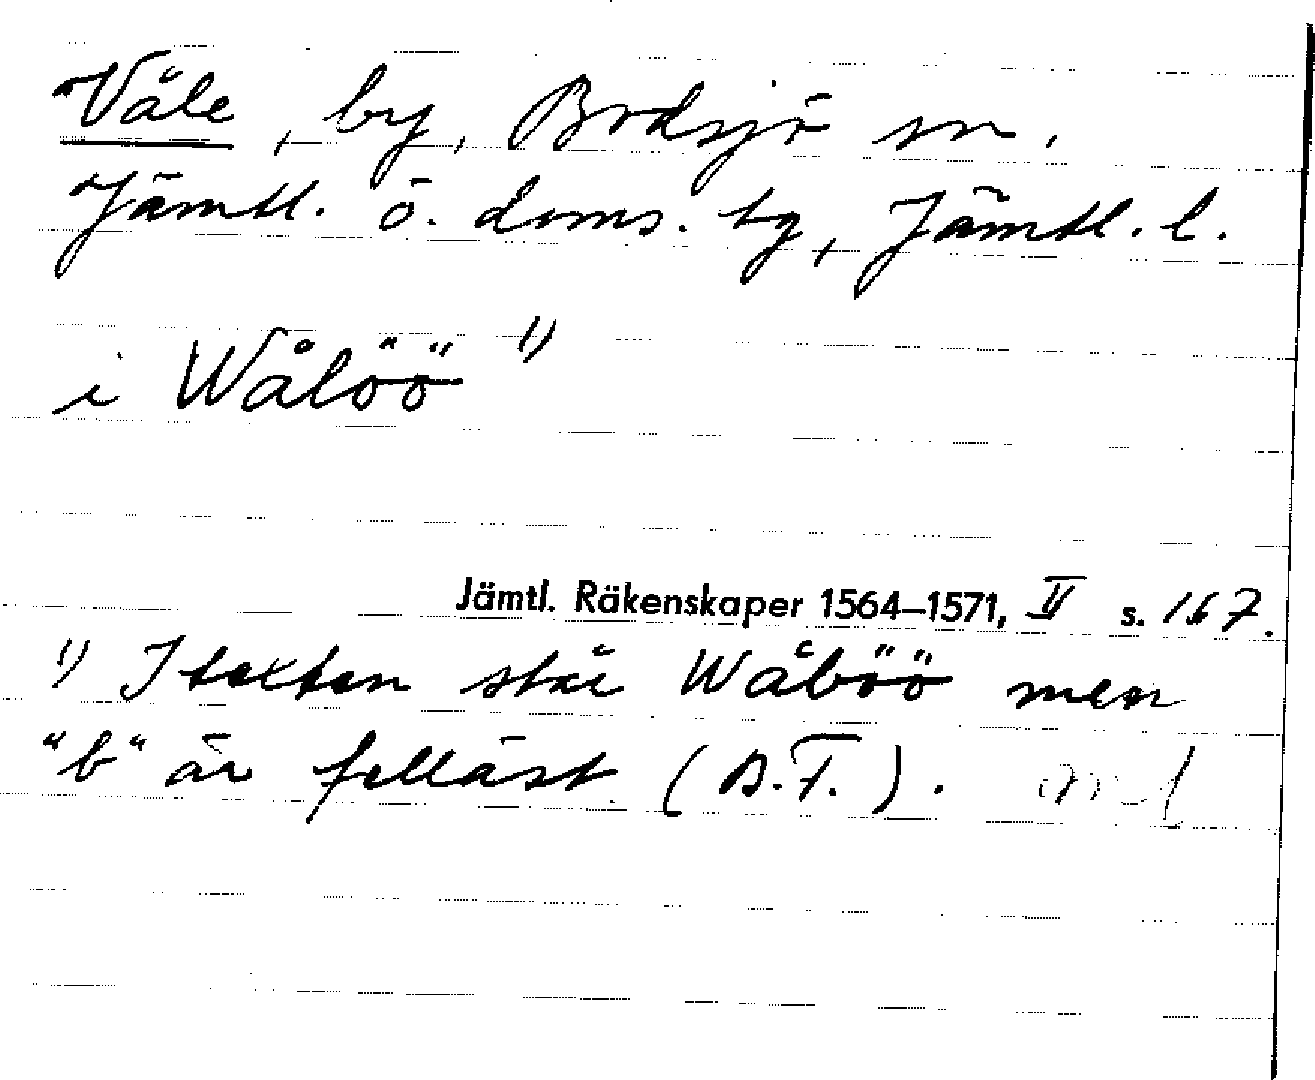 Våle, by, Brdsjö sn.
Jämtl. ö. doms. bg, Jämtl. l.
i Wålöö 1)
Jämtl. Räkenskaper 1564–1571, II s. 167.
1) I texten står Wåböö men
"b" är felläst (B.F.).